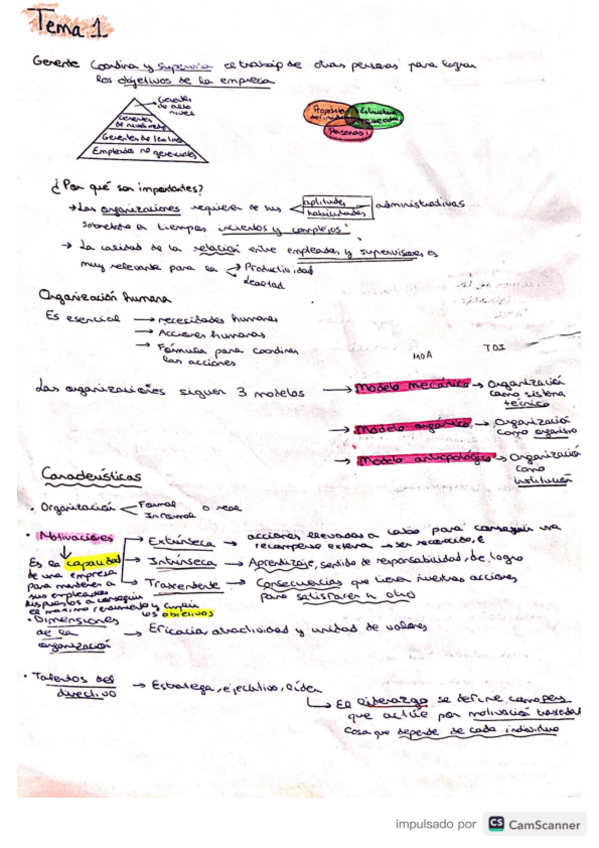 Tema 1
Gerente Coordina y supervisa el trabajo de otras personas para lograr
los objetivos de la empresa
Gerentes
de alto
nivel
Gerentes
de nivel medio
Gerentes de línea
Empleados no gerenciales
Propósito
definido
Estructura
Personas
¿Por qué son importantes?
→ Las organizaciones requieren de sus aptitudes
habilidades administrativas
sobretodo a tiempos inciertos y complejos
→ La calidad de la relación entre empleados y supervisores es
muy relevante para la → Productividad
lealtad
Organización humana
Es esencial → necesidades humanas
→ Acciones humanas
→ Fórmula para coordinar
las acciones
MOA TOI
Las organizaciones siguen 3 modelos → Modelo mecánico → Organización
como sistema
técnico
→ Modelo orgánico → Organización
como organismo
→ Modelo antropológico → Organización
como
institución
Características
· Organización Formal o real
Informal
· Motivaciones
Extrínseca → acciones llevadas a cabo para conseguir una
recompensa externa → ser reconocido, €
Es la capacidad
de una empresa
para mantener a
sus empleados
dispuestos a conseguir
el máximo rendimiento y cumplir
los objetivos
Intrínseca → Aprendizaje, sentido de responsabilidad, de logro
Trascendente → Consecuencias que tiene nuestras acciones
para satisfacer a otro
· Dimensiones
de la
organización
→ Eficacia, atractividad y unidad de valores
· Talentos del
directivo
→ Estratega, ejecutivo, líder
El liderazgo se define como
que actúe por motivación
cosa que depende de cada individuo
impulsado por CS CamScanner